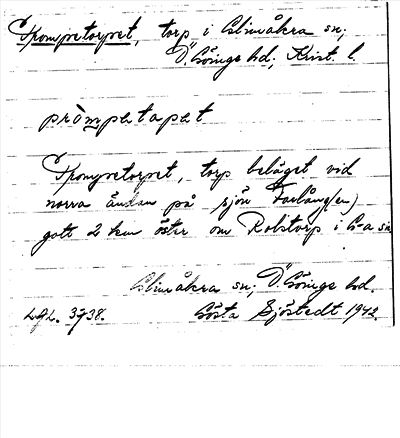 Trompetorpet, torp i Glimåkra sn;
Ö. Göinge hd; Krist. l.
pròmpetàpet
Trompetorpet, torp beläget vid
norra ändan på sjön Farlång(en)
gott 2 km öster om Robstorp i G-a sn
Glimåkra sn; Ö. Göinge hd.
3738. Gösta Sjöstedt 1942.